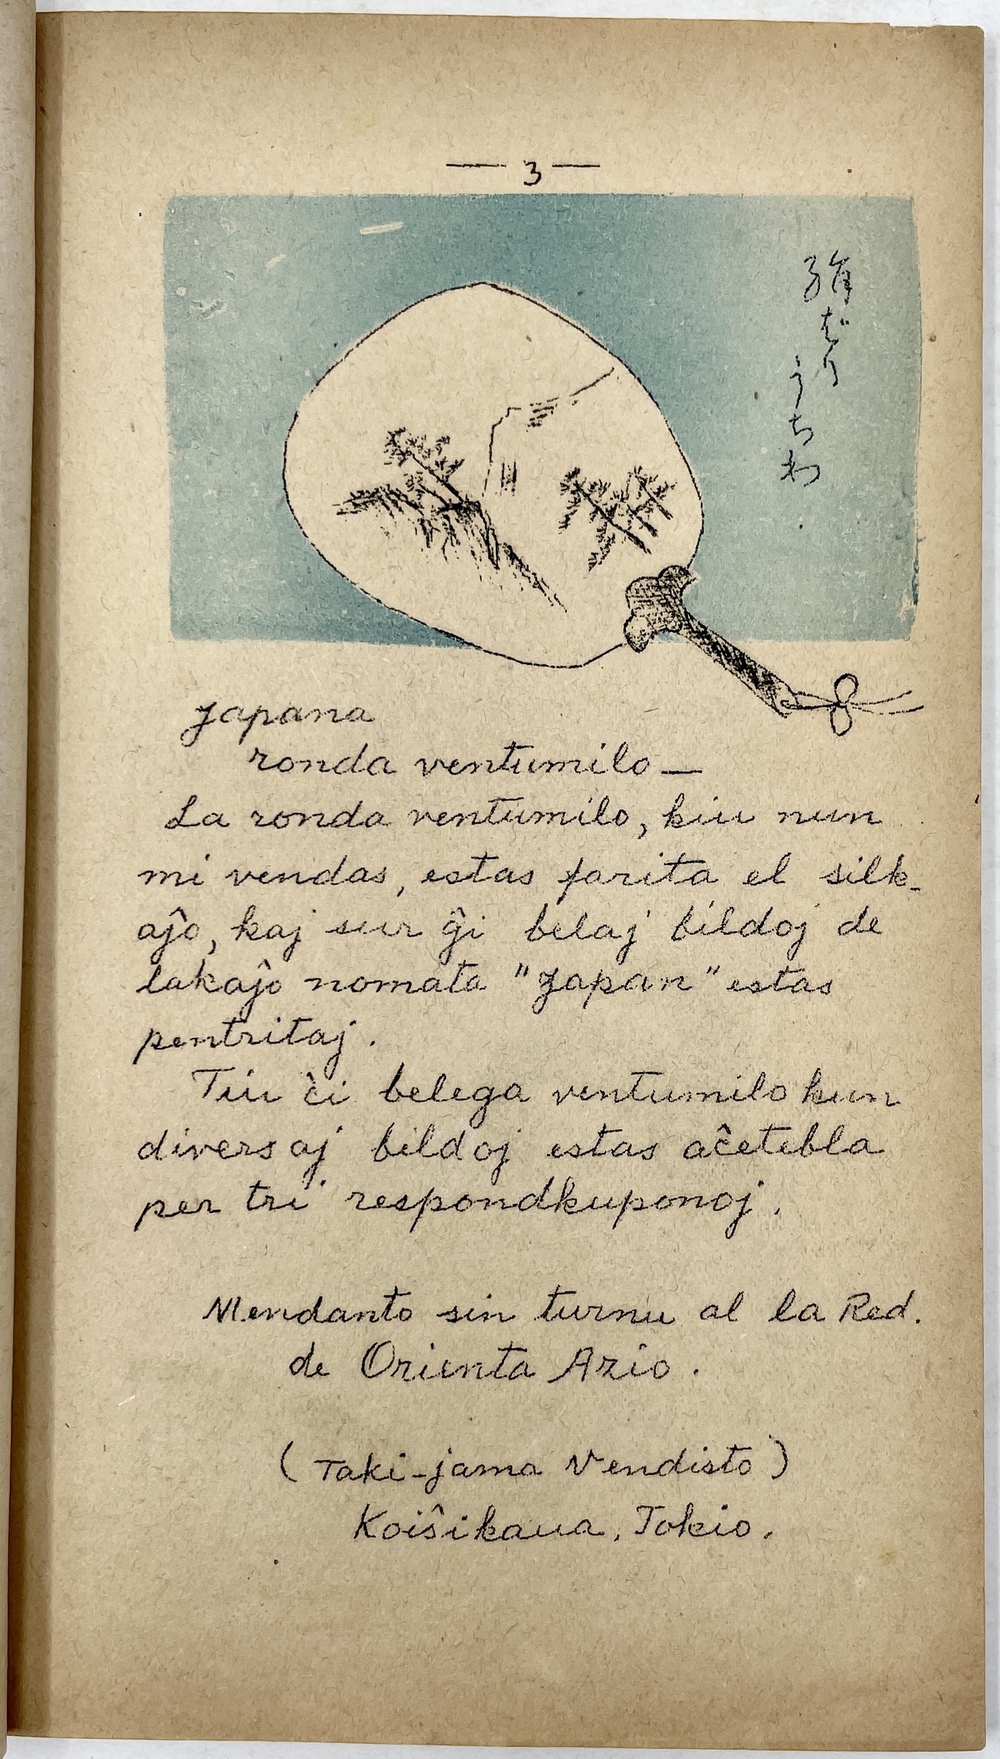 — 3 —
絹ばり
うちわ
Japana
ronda ventumilo —
La ronda ventumilo, kiu nun
mi vendas, estas farita el silk-
aĵo, kaj sur ĝi belaj bildoj de
lakaĵo nomata "Japan" estas
pentritaj.
Tiu ĉi belega ventumilo kun
diversaj bildoj estas aĉetebla
per tri respondkuponoj.
Mendanto sin turnu al la Red.
de Orienta Azio.
(Taki-jama Vendisto)
Koiŝikaua, Tokio.